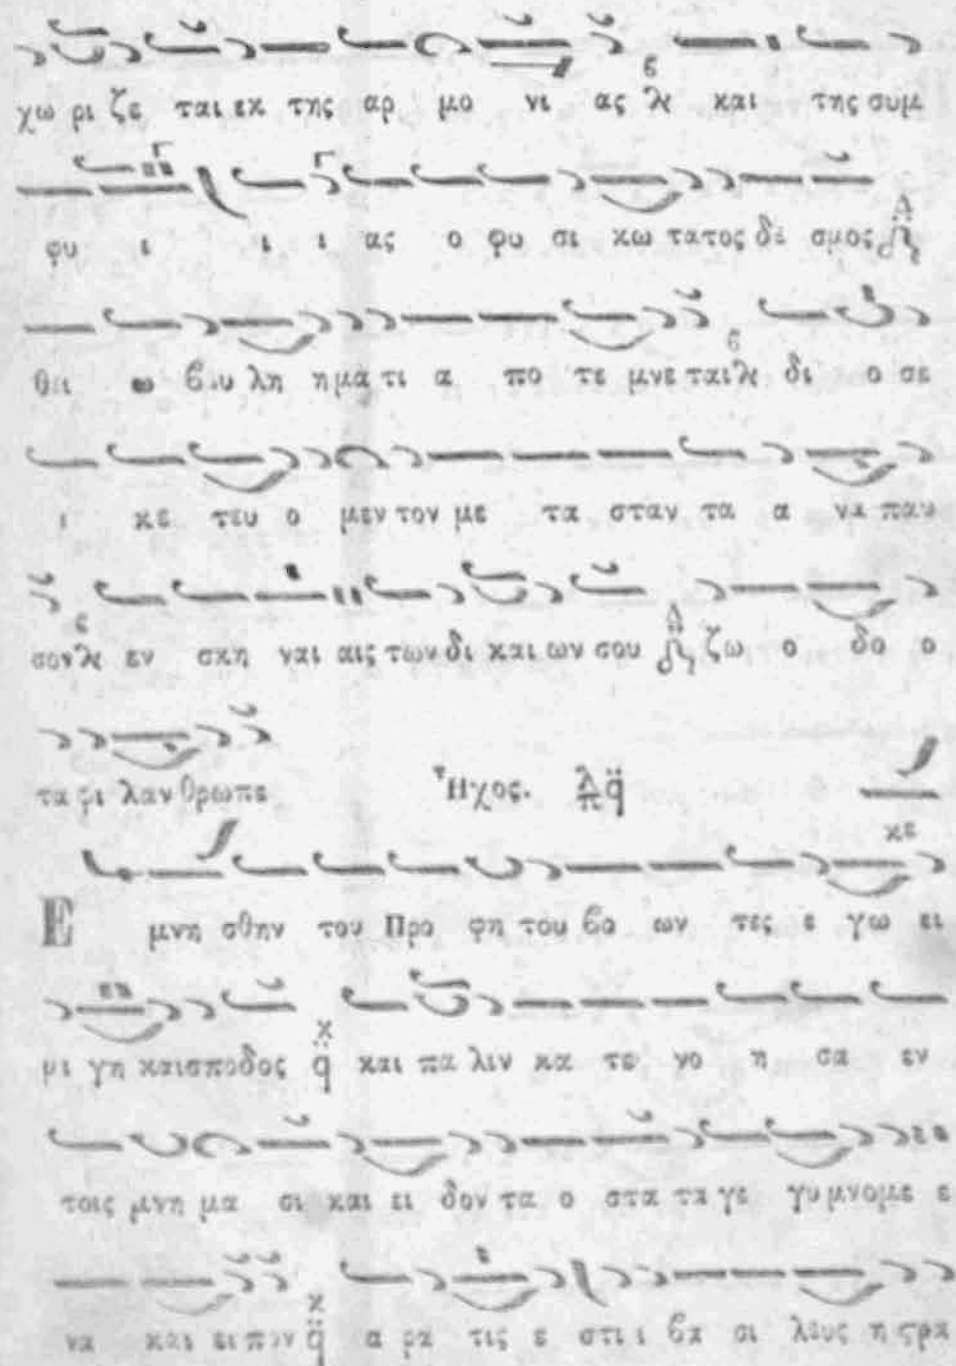 χω ρι ζε ται εκ της αρ μο νι ας και της συμ
φυ ι ι ι ας ο φυ σι κω τατος δε σμος
θει ω βου λη η μα τι α πο τε μνε ται δι ο σε
ι κε τευ ο μεν τον με τα σταν τα α να παυ
σον εν σκη ναι αις των δι και ων σου ζω ο δο ο
τα φι λαν θρωπε Ἦχος. λ π q κε
Ε μνη σθην του Προ φη του βο ων τες ε γω ει
μι γη και σποδος q κ και πα λιν κα τε νο η σα εν
τοις μνη μα σι και ει δον τα ο στα τα γε γυ μνομε ε
να και ει πον q κ α ρα τις ε στι ι βα σι λευς η ςρα